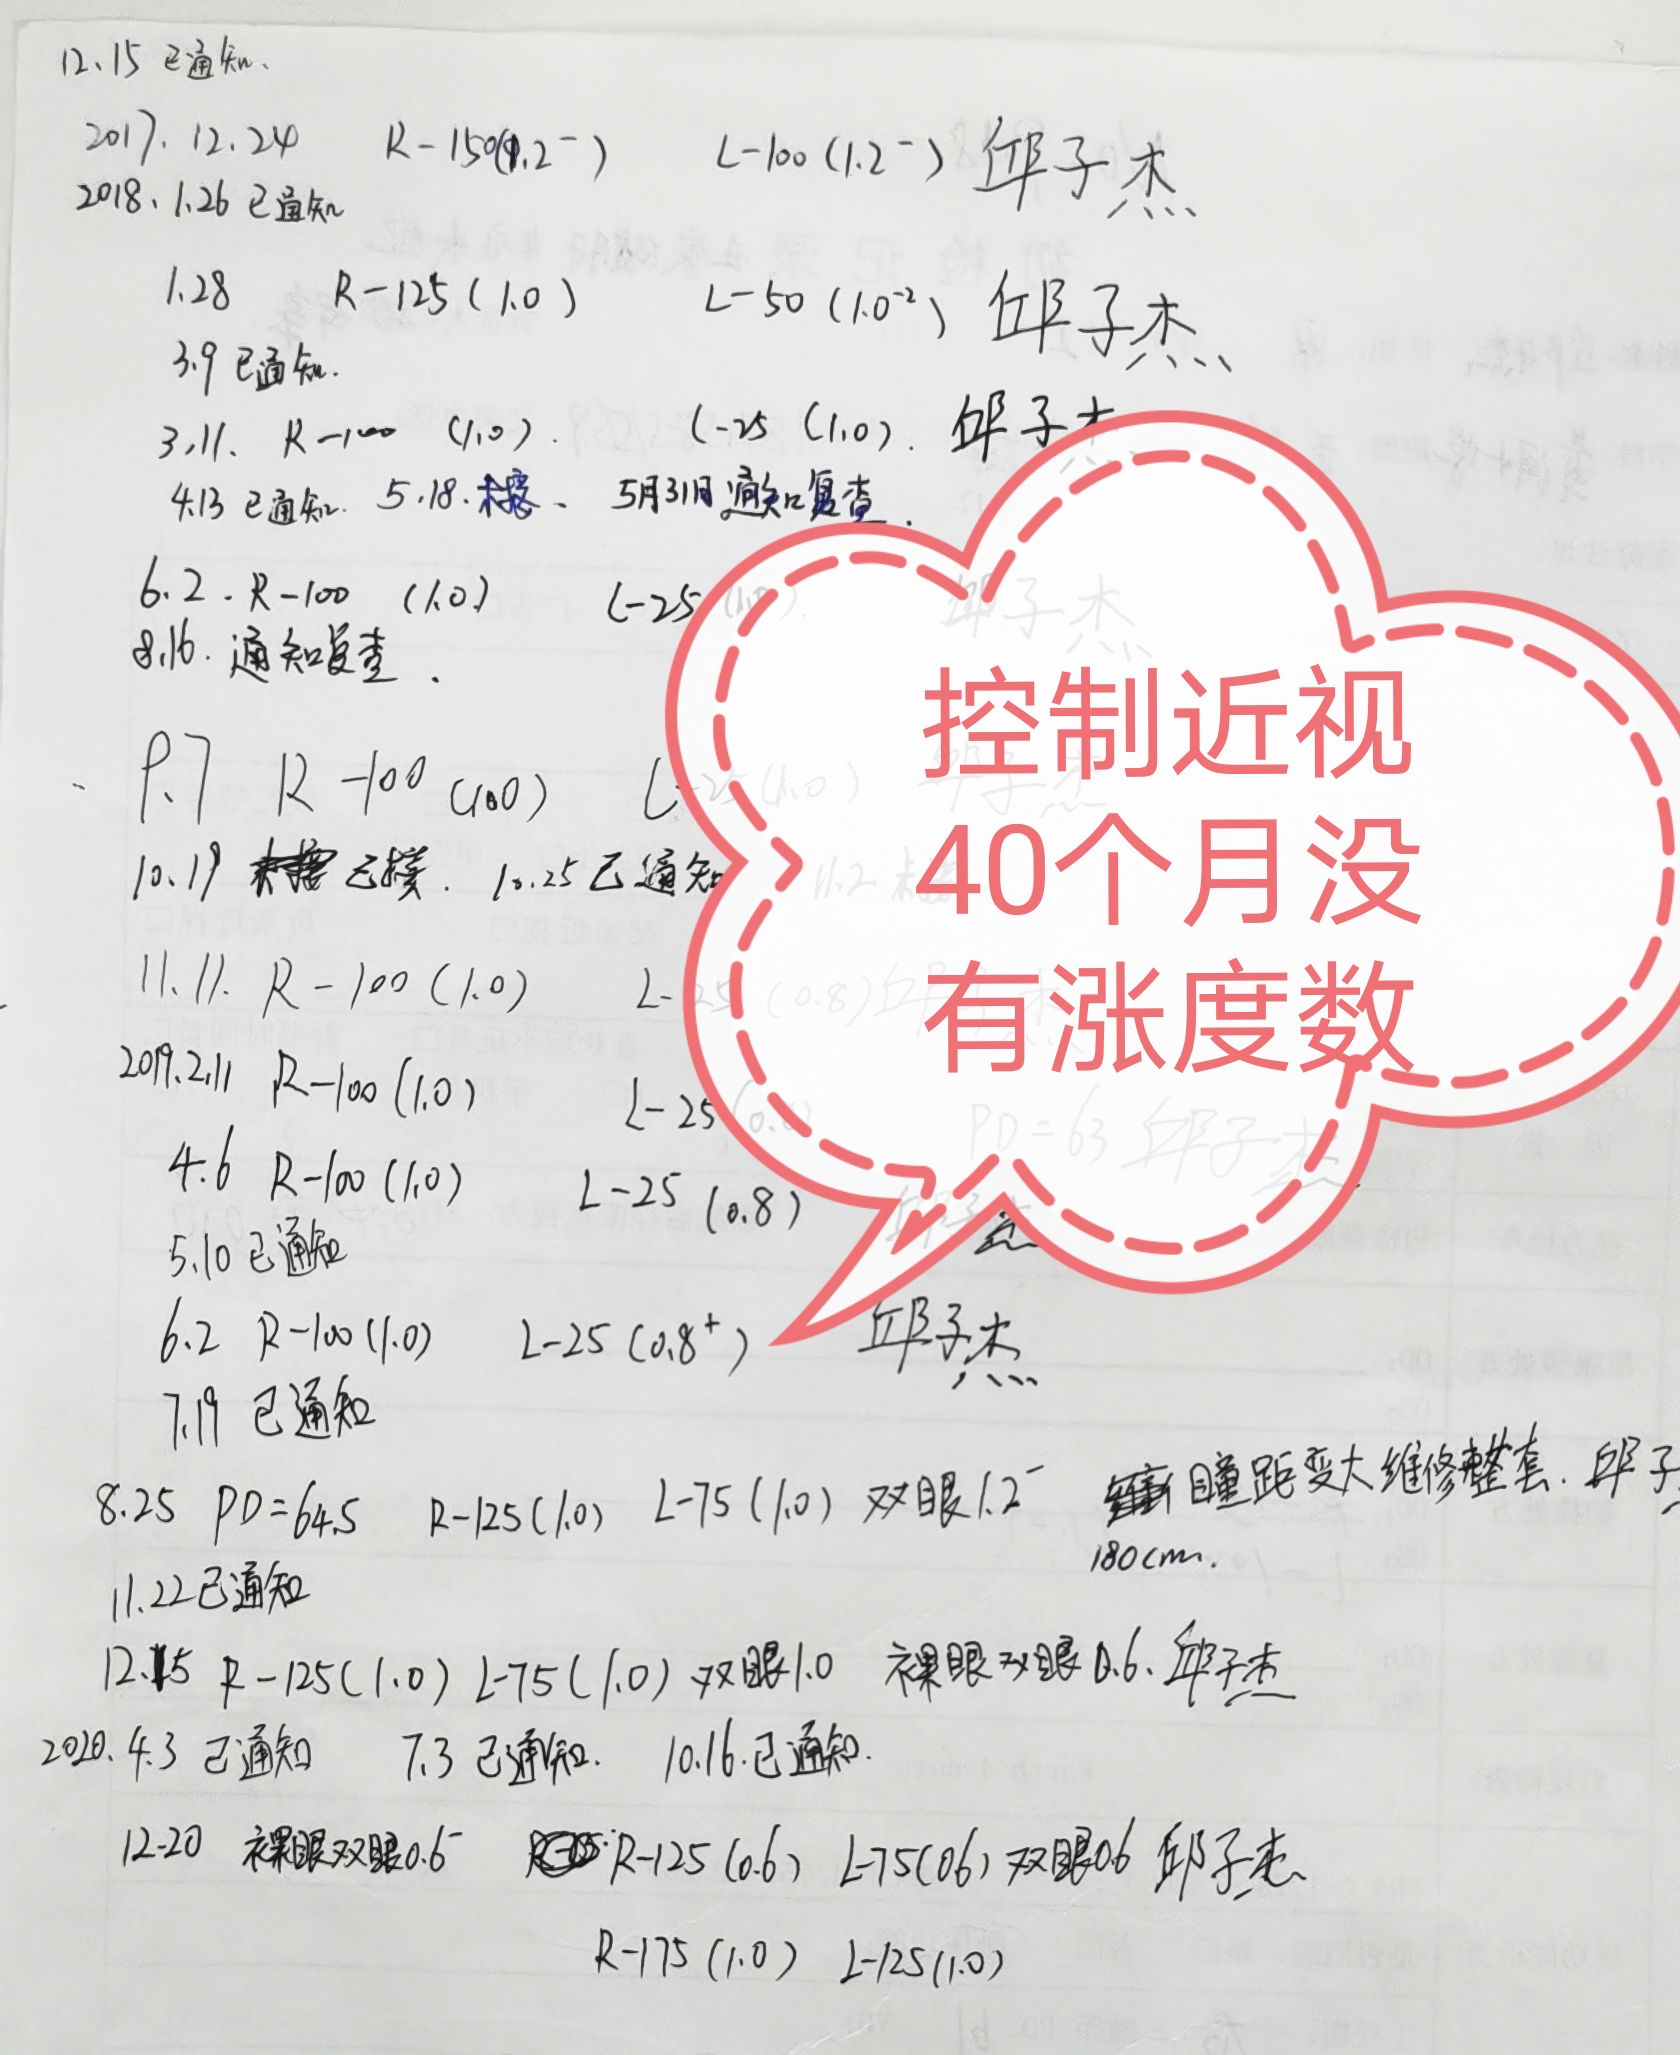 12.15 已通知.
2017.12.24 R-150(1.2⁻) L-100(1.2⁻) 邱子杰
2018.1.26 已通知
1.28 R-125(1.0) L-50(1.0⁻²) 邱子杰
3.9 已通知.
3.11. R-100 (1.0). L-25 (1.0). 邱子杰
4.13 已通知. 5.18.未接、 5月31日通知复查.
6.2. R-100 (1.0) L-25 (1.0). 邱子杰
8.16. 通知复查.
9.7 R-100 (1.0) L-25(1.0) 邱子杰
10.19 已接. 10.25已通知 11.2未接
11.11. R-100(1.0) L-25(0.8) 邱子杰
2019.2.11 R-100(1.0) L-25 PD=63 邱子杰
4.6 R-100(1.0) L-25 (0.8) 邱子杰
5.10 已通知
6.2 R-100(1.0) L-25(0.8⁺) 邱子杰
7.19 已通知
8.25 PD=64.5 R-125(1.0) L-75(1.0) 双眼1.2⁻ 瞳距变大维修整套. 邱子
180cm.
11.22已通知
12.15 R-125(1.0) L-75(1.0) 双眼1.0 裸眼双眼0.6. 邱子杰
2020.4.3 已通知 7.3 已通知. 10.16.已通知.
12-20 裸眼双眼0.6⁻ R-125(0.6) L-75(0.6) 双眼0.6 邱子杰
R-175(1.0) L-125(1.0)
控制近视
40个月没
有涨度数